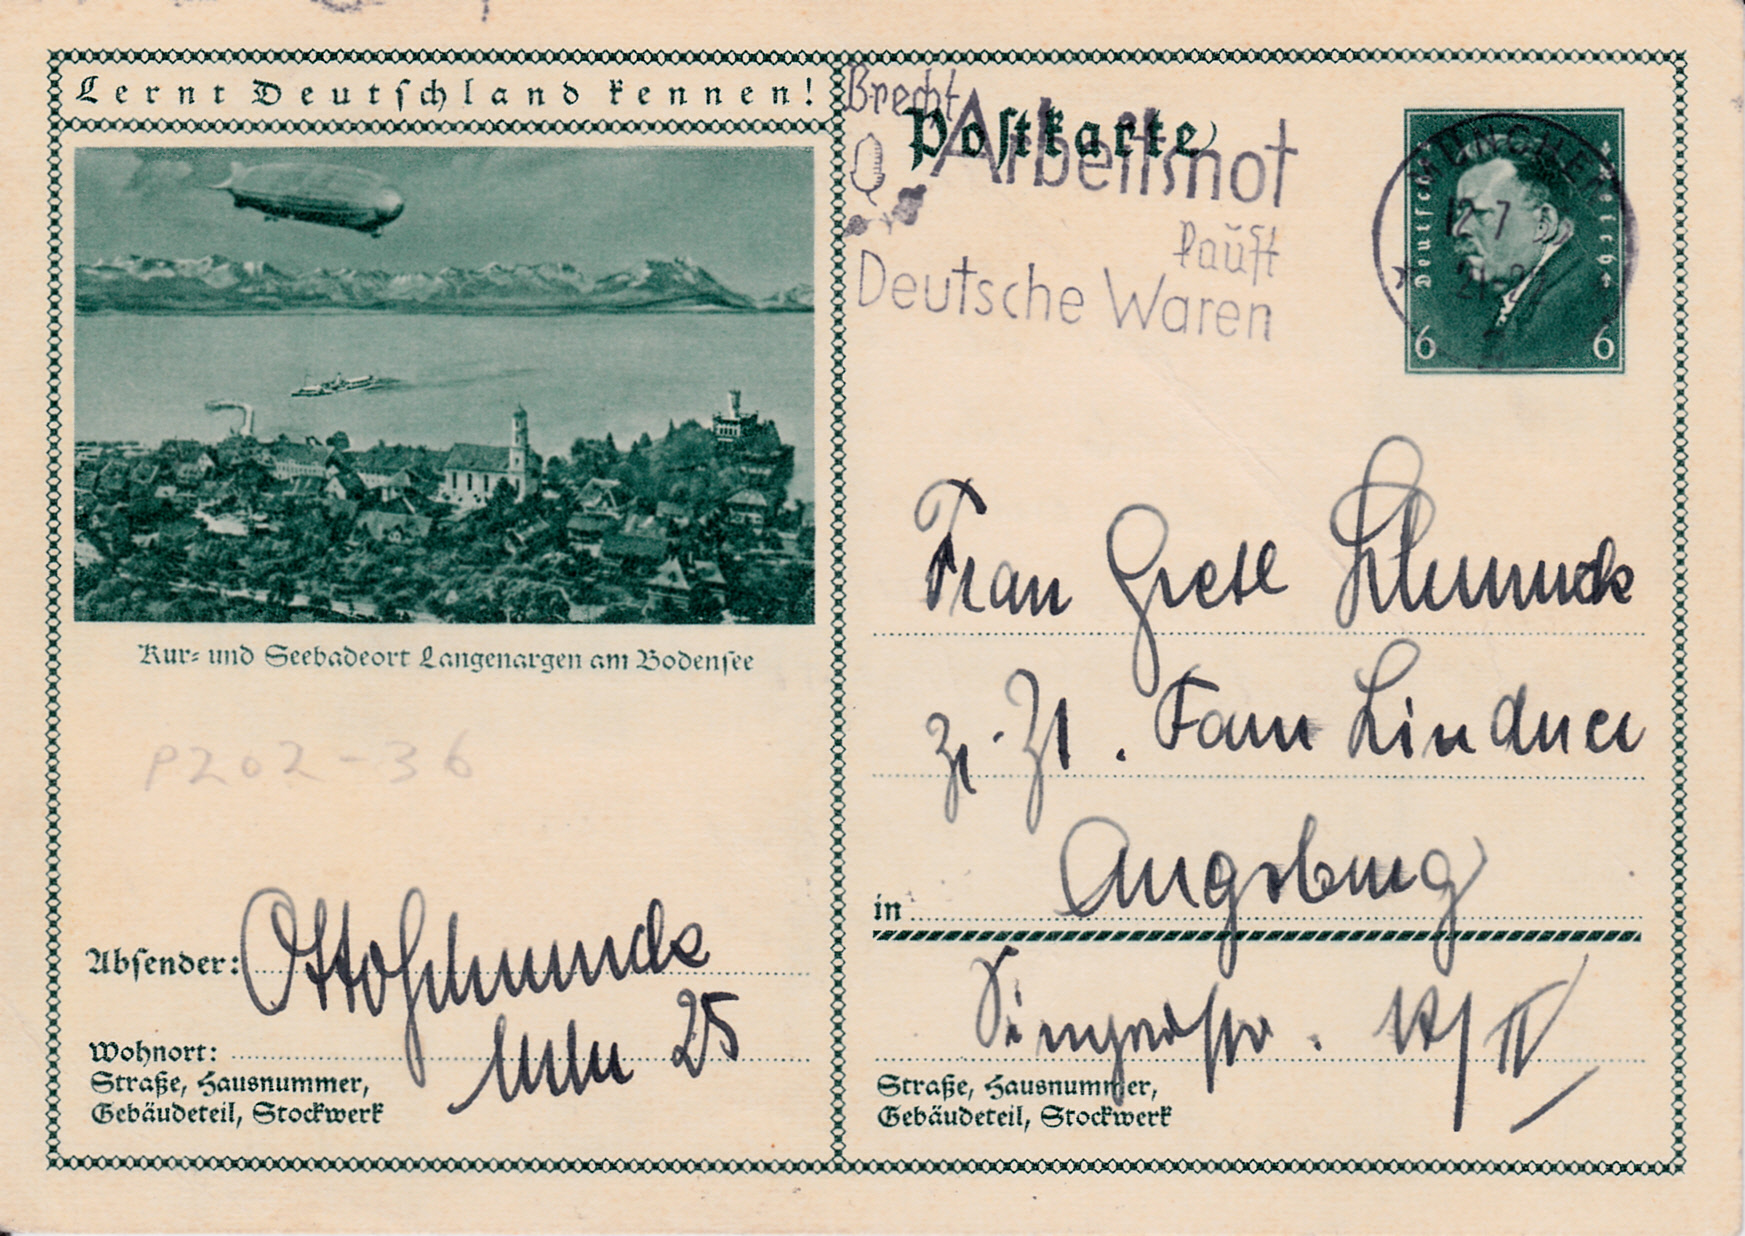 Lernt Deutschland kennen!
Kur- und Seebadeort Langenargen am Bodensee
P202-36
Absender: Otto Schmuck
Wohnort:
25
Straße, Hausnummer,
Gebäudeteil, Stockwerk
Postkarte
Brecht
Arbeitsnot
kauft
Deutsche Waren
MÜNCHEN
12-7
Deutsches Reich
6 6
Frau Gretl Schmuck
z. Zt. Fam Lindner
in Augsburg
Straße, Hausnummer,
Gebäudeteil, Stockwerk